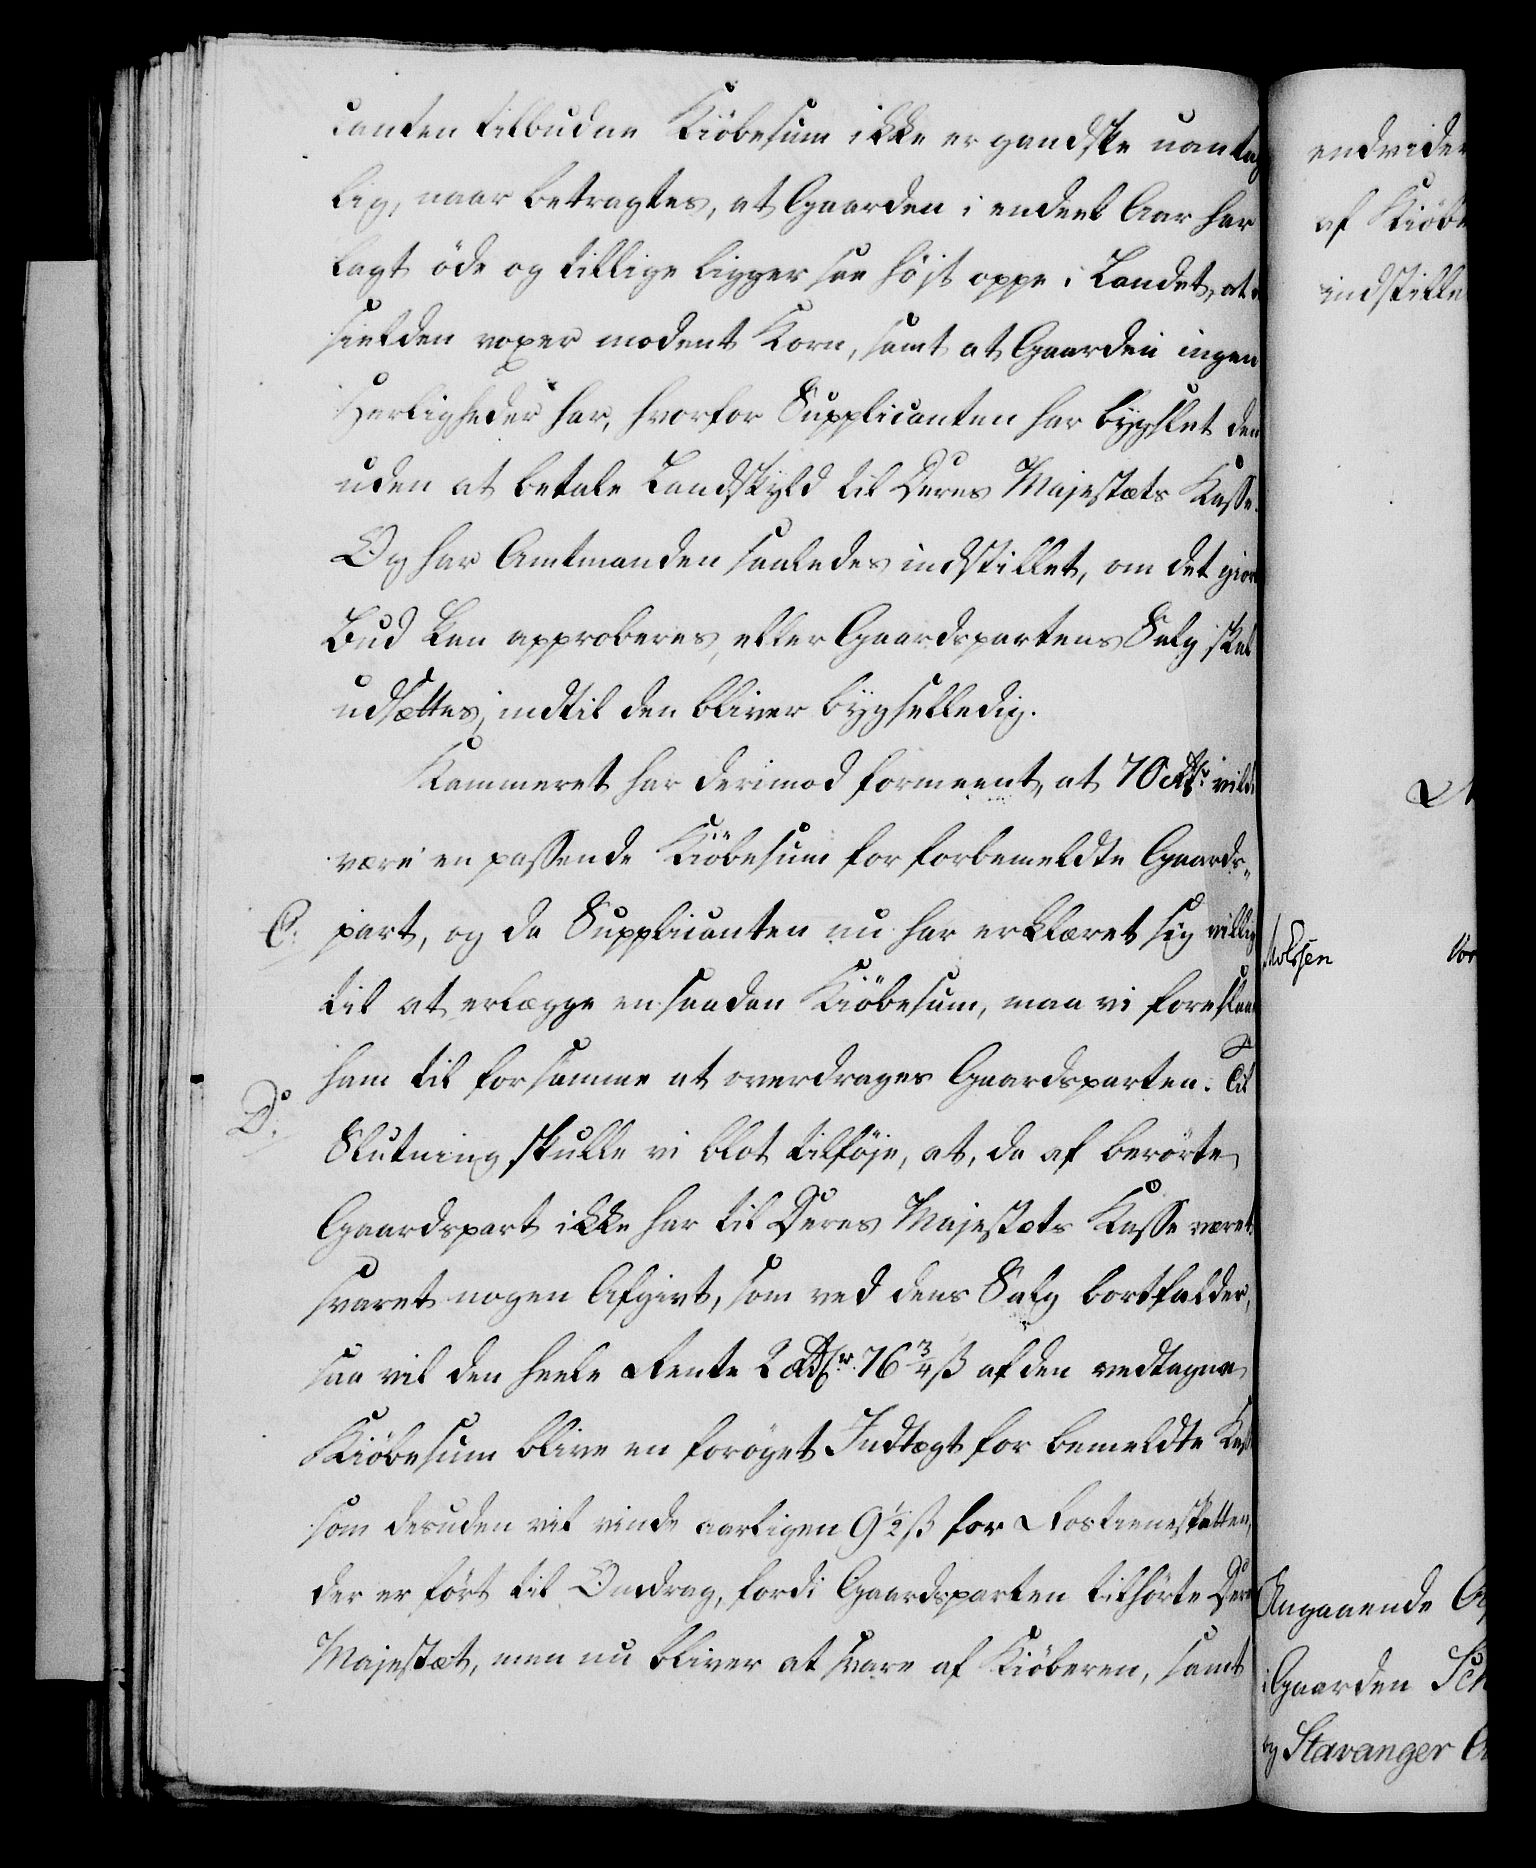 canten tilbudne Kiöbesum ikke er gandske uantag
lig, naar betragtes, at Gaarden i endeel Aar har
lagt öde og tillige ligger saa höit oppe i Landet, at
sielden voxer modent Korn, samt at Gaarden ingen
Herligheder har, hvorfor Supplicanten har bygslet den
uden at betale Landskyld til Deres Majestæts Kasse.
Og har Amtmanden saaledes indstillet, om det giorte
Bud kan approberes, eller Gaardspartens Salg skal
udsættes, indtil den bliver bygselledig.
Kammeret har derimod formeent, at 70 Rdlr. vilde
være en passende Kiöbesum for forbemeldte Gaards-
C. part, og da Supplicanten nu har erklæret sig villig
til at erlægge en saadan Kiöbesum, maa vi foreslaae
ham til for samme at overdrages Gaardsparten. Til
D.
Slutning skulle vi blot tilföje, at, da af berörte
Gaardspart ikke har til Deres Majestæts Kasse været
svaret nogen Afgivt, som ved dens Salg bortfalder,
saa vil den heele Rente 2 Rdlr. 76 3/4 ß af den vedtagne
Kiöbesum blive en foröget Indtægt for bemeldte Kasse
som desuden vil vinde aarligen 9 1/2 ß for Rostienesteskatten,
der er fört til Omdrag, fordi Gaardsparten tilhörte Deres
Majestæt, men nu bliver at svare af Kiöberen, samt
endvider
af Kiöb
indstille
Angaaende
i Gaarden Sch
og Stavanger